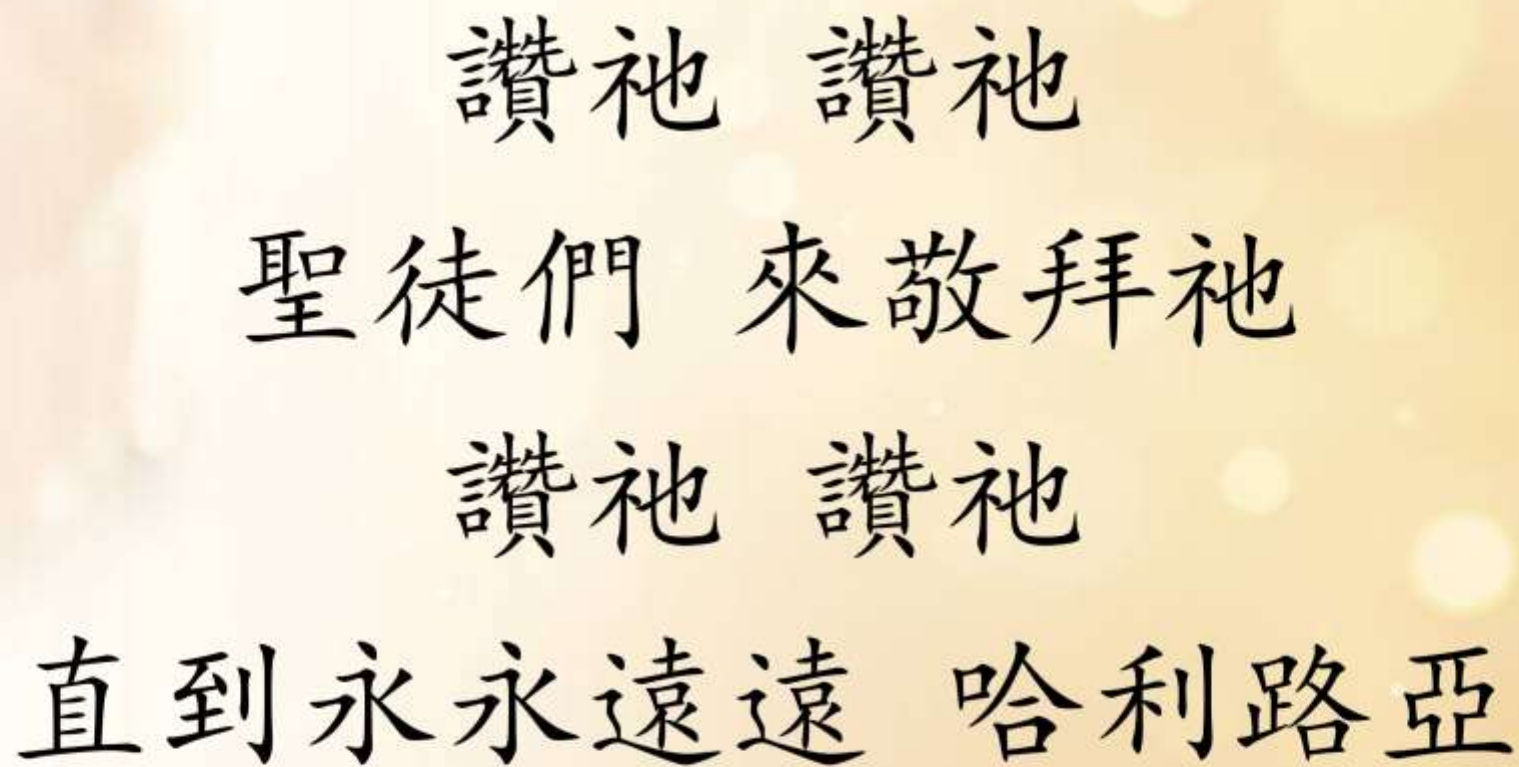 讚祂 讚祂
聖徒們 來敬拜祂
讚祂 讚祂
直到永永遠遠 哈利路亞